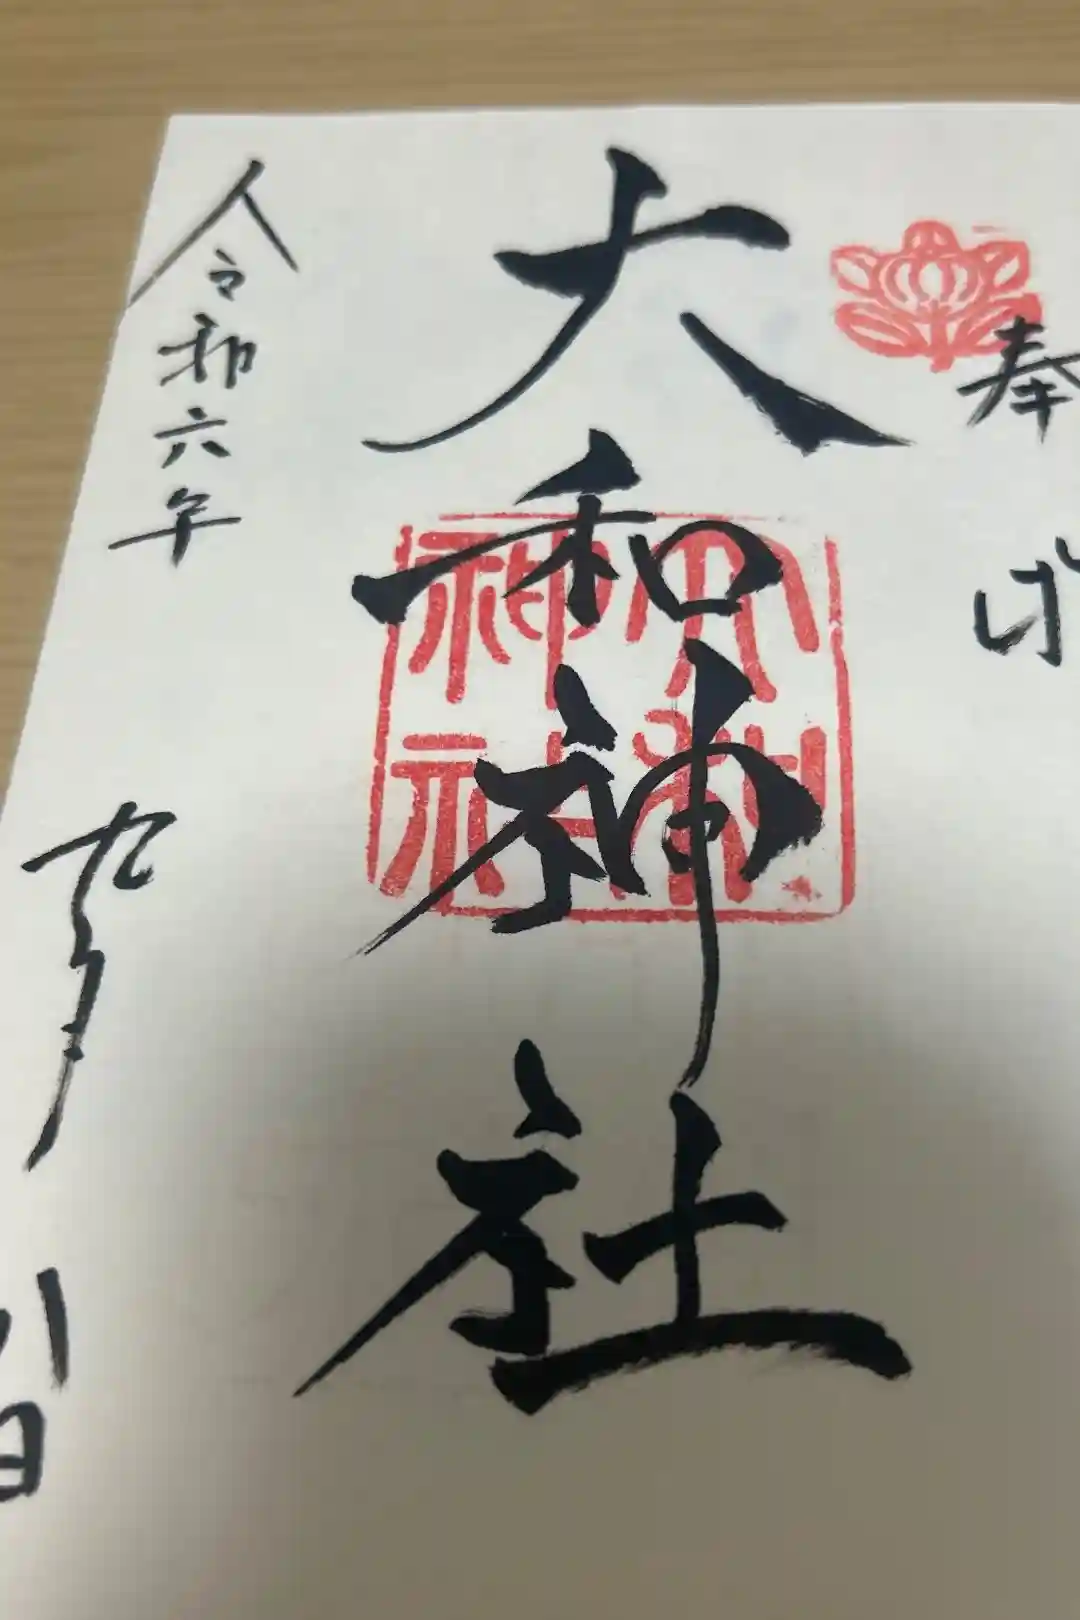 奉拝
大和神社
大和
神社
令和六年
九月
八日